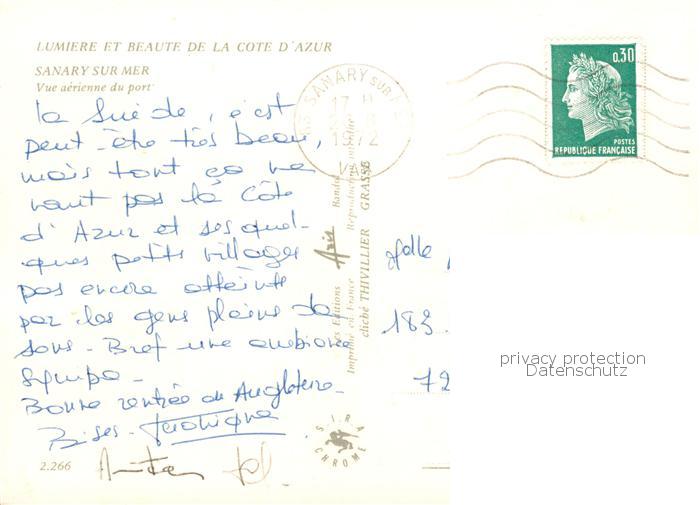 LUMIERE ET BEAUTE DE LA COTE D'AZUR
SANARY SUR MER
Vue aérienne du port
la Suède, c'est
peut-être très beau,
mais tout ça ne
vaut pas la Côte
d'Azur et ses quel-
ques petits villages
pas encore atteints
par les gens pleins de
sous - Bref une ambiance
sympa -
Bonne rentrée en Angleterre -
Bises -
2.266
SANARY SUR
17 H
1972
Les Editions
Imprimé en France
cliché THIVILLIER GRASSE
SIRA
CHROME
Melle
183
72
0,30
POSTES
REPUBLIQUE FRANCAISE
privacy protection
Datenschutz